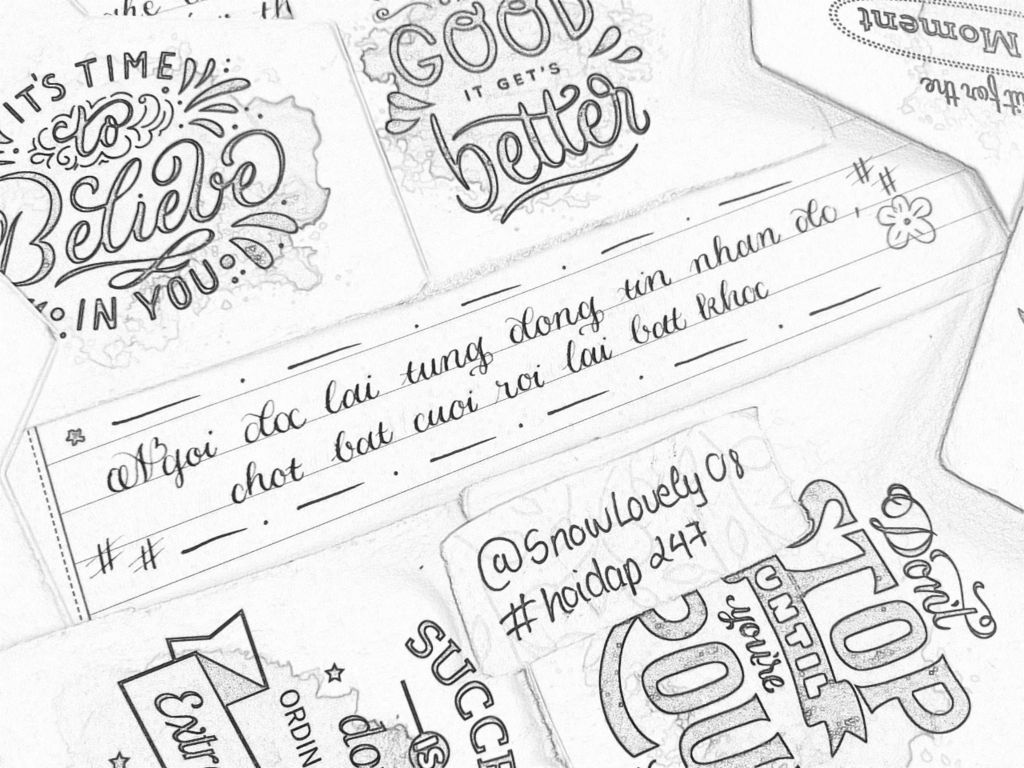 the
th
IT'S TIME
to
Believe
IN YOU
GOOD
IT GET'S
better
Moment
it for the
# #
Ngoi doc lai tung dong tin nhan do,
chot bat cuoi roi lai bat khoc
# #
@SnowLovely08
#hoidap247
Don't
STOP
UNTIL
you're
SUCCE
IS
ORDIN
do
Extr